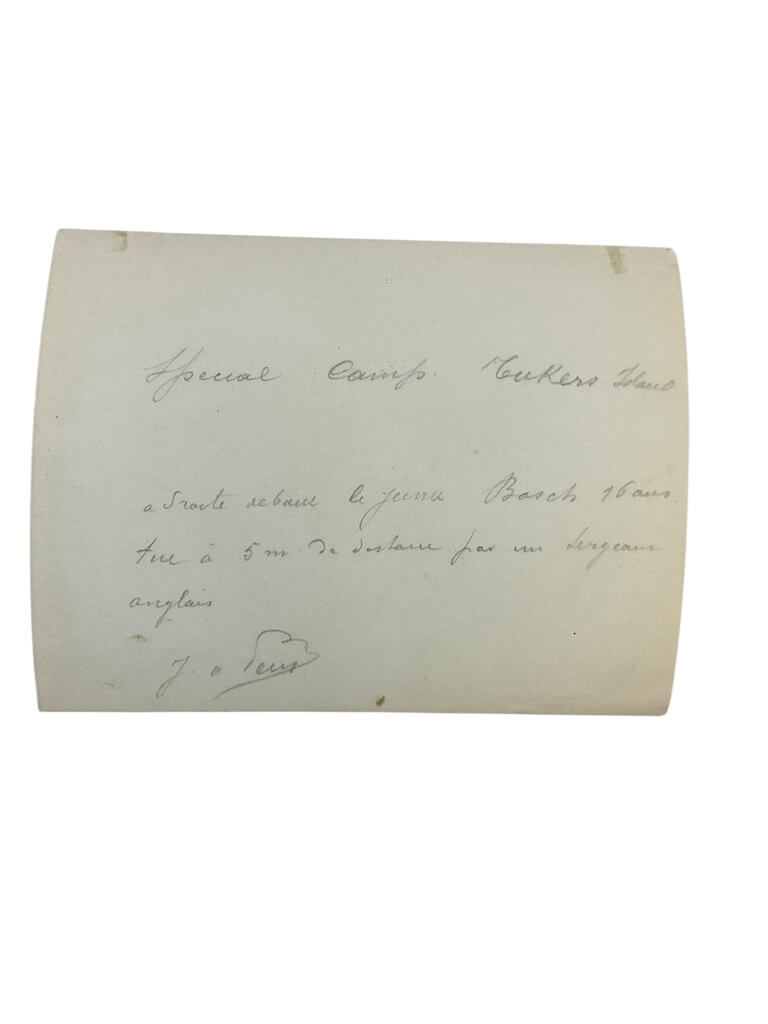 Special Camp. Tukers Island
a droite debout le jeune Bosch 16 ans
tue à 5 m de distance par un sergeant
anglais
J. a